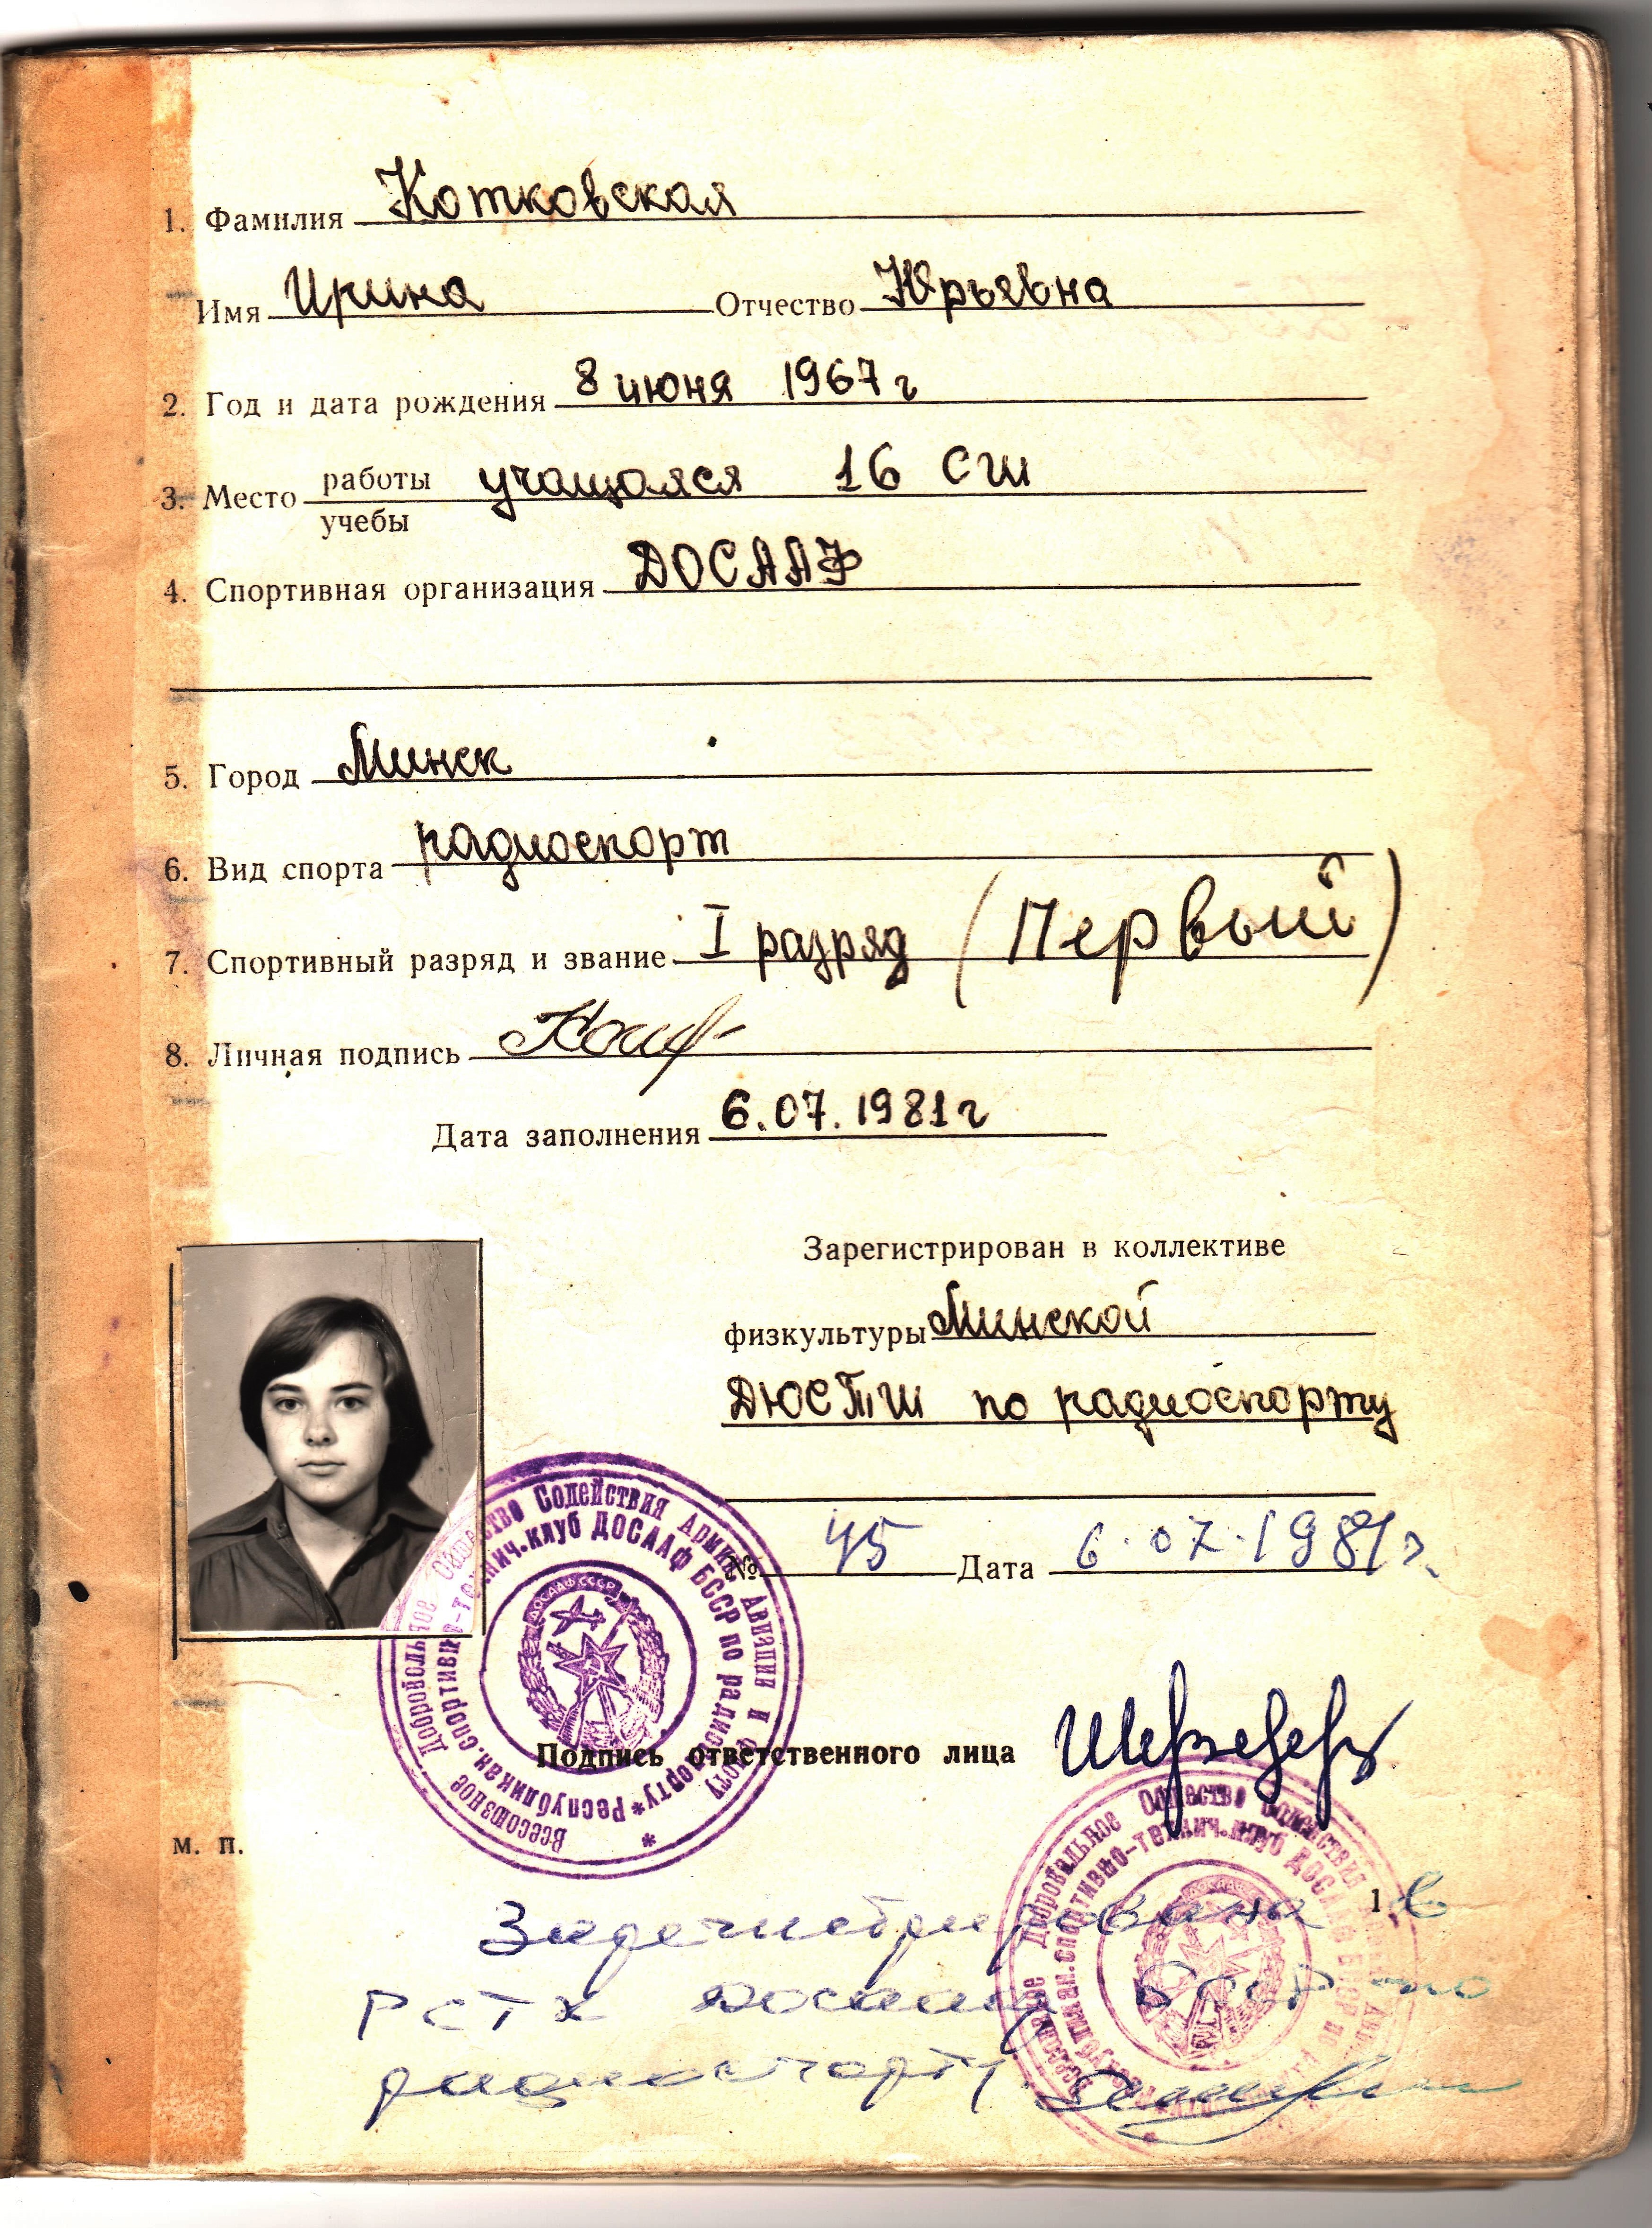 1. Фамилия Котковская
Имя Ирина Отчество Юрьевна
2. Год и дата рождения 8 июня 1967 г
3. Место работы учебы учащаяся 16 СШ
4. Спортивная организация ДОСААФ
5. Город Минск
6. Вид спорта радиоспорт
7. Спортивный разряд и звание I разряд (Первый)
8. Личная подпись
Дата заполнения 6.07.1981 г
Зарегистрирован в коллективе
физкультуры Минской
ДЮСТШ по радиоспорту
№ 45 Дата 6.07.1981 г.
Всесоюзное Добровольное Общество Содействия Армии Авиации и Флоту
Республикан.спортивно-технич.клуб ДОСААФ БССР по радиоспорту
ДОСААФ СССР
Подпись ответственного лица
м. п.
Всесоюзное Добровольное Общество Содействия
Республикан.спортивно-технич.клуб ДОСААФ БССР по
Зарегистрирована 1 в
РСТК ДОСААФ БССР по
радиоспорту